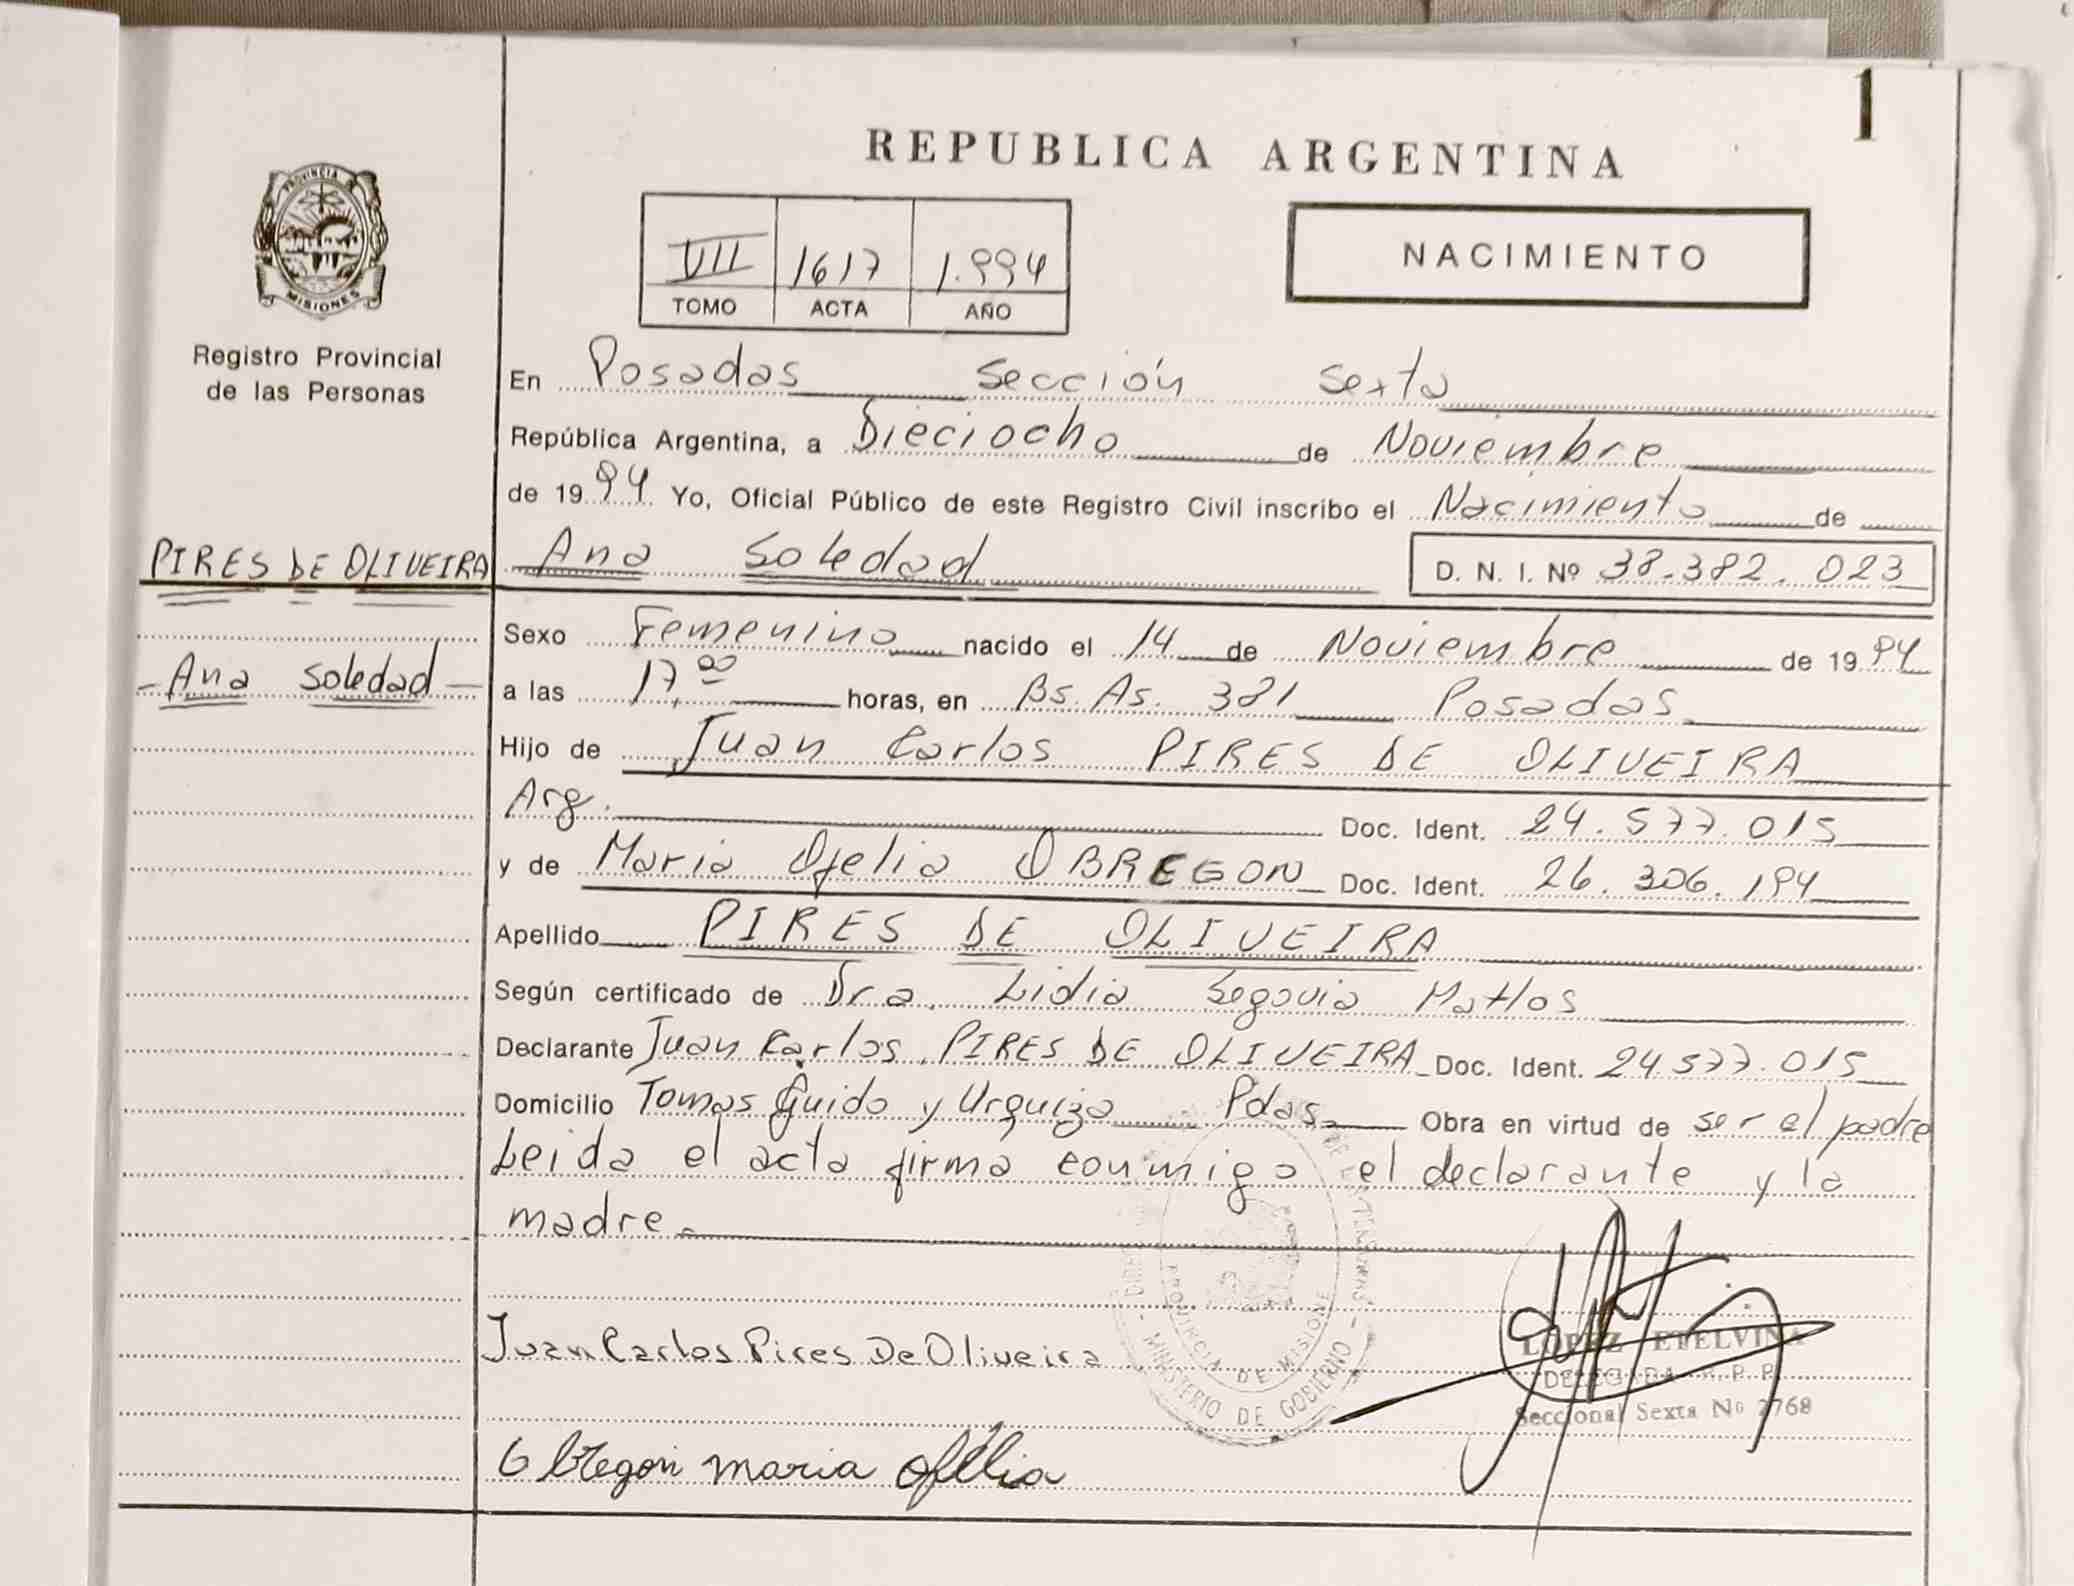 1
REPUBLICA ARGENTINA
PROVINCIA DE MISIONES
VII 1617 1.994
TOMO ACTA AÑO
NACIMIENTO
Registro Provincial
de las Personas
En Posadas sección sexta
República Argentina, a Dieciocho de Noviembre
de 1994 Yo, Oficial Público de este Registro Civil inscribo el Nacimiento de
PIRES DE OLIVEIRA Ana Soledad D. N. I. Nº 38.382.023
Sexo Femenino nacido el 14 de Noviembre de 1994
Ana Soledad
a las 17,00 horas, en Bs. As. 381 Posadas
Hijo de Juan Carlos PIRES DE OLIVEIRA
Arg. Doc. Ident. 24.577.015
y de Maria Ofelia OBREGON Doc. Ident. 26.306.194
Apellido PIRES DE OLIVEIRA
Según certificado de Dra. Lidia Segovia Mattos
Declarante Juan Carlos PIRES DE OLIVEIRA Doc. Ident. 24.577.015
Domicilio Tomas Guido y Urquiza Pdas. Obra en virtud de ser el padre
Leida el acta firma conmigo el declarante y la
madre
Juan Carlos Pires De Oliveira
PROVINCIA DE MISIONES
MINISTERIO DE GOBIERNO
LOPEZ ETELVINA
DELEGADA R. P. P.
Seccional Sexta Nº 2768
Obregon maria ofelia